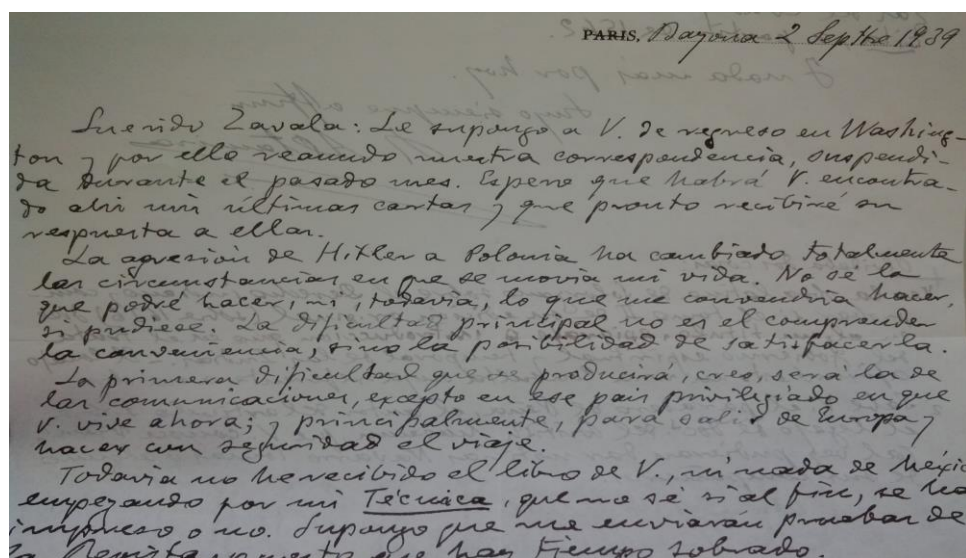 PARIS, Bayona 2 Septbre 1939
Querido Zavala: Le supongo a V. de regreso en Washing-
ton y por ello reanudo nuestra correspondencia, suspendi-
da durante el pasado mes. Espero que habrá V. encontra-
do ahi mis últimas cartas y que pronto recibiré su
respuesta a ellas.
La agresión de Hitler a Polonia ha cambiado totalmente
las circunstancias en que se movia mi vida. No sé lo
que podré hacer, ni, todavia, lo que me convendria hacer,
si pudiese. La dificultad principal no es el comprender
la conveniencia, sino la posibilidad de satisfacerla.
La primera dificultad que se producirá, creo, será la de
las comunicaciones, excepto en ese pais privilegiado en que
V. vive ahora; y principalmente, para salir de Europa y
hacer con seguridad el viaje.
Todavia no he recibido el libro de V., ni nada de México
empezando por mi Técnica, que no sé si al fin, se ha
impreso o no. Supongo que me enviarán pruebas de
la Revista puesto que hay tiempo sobrado.